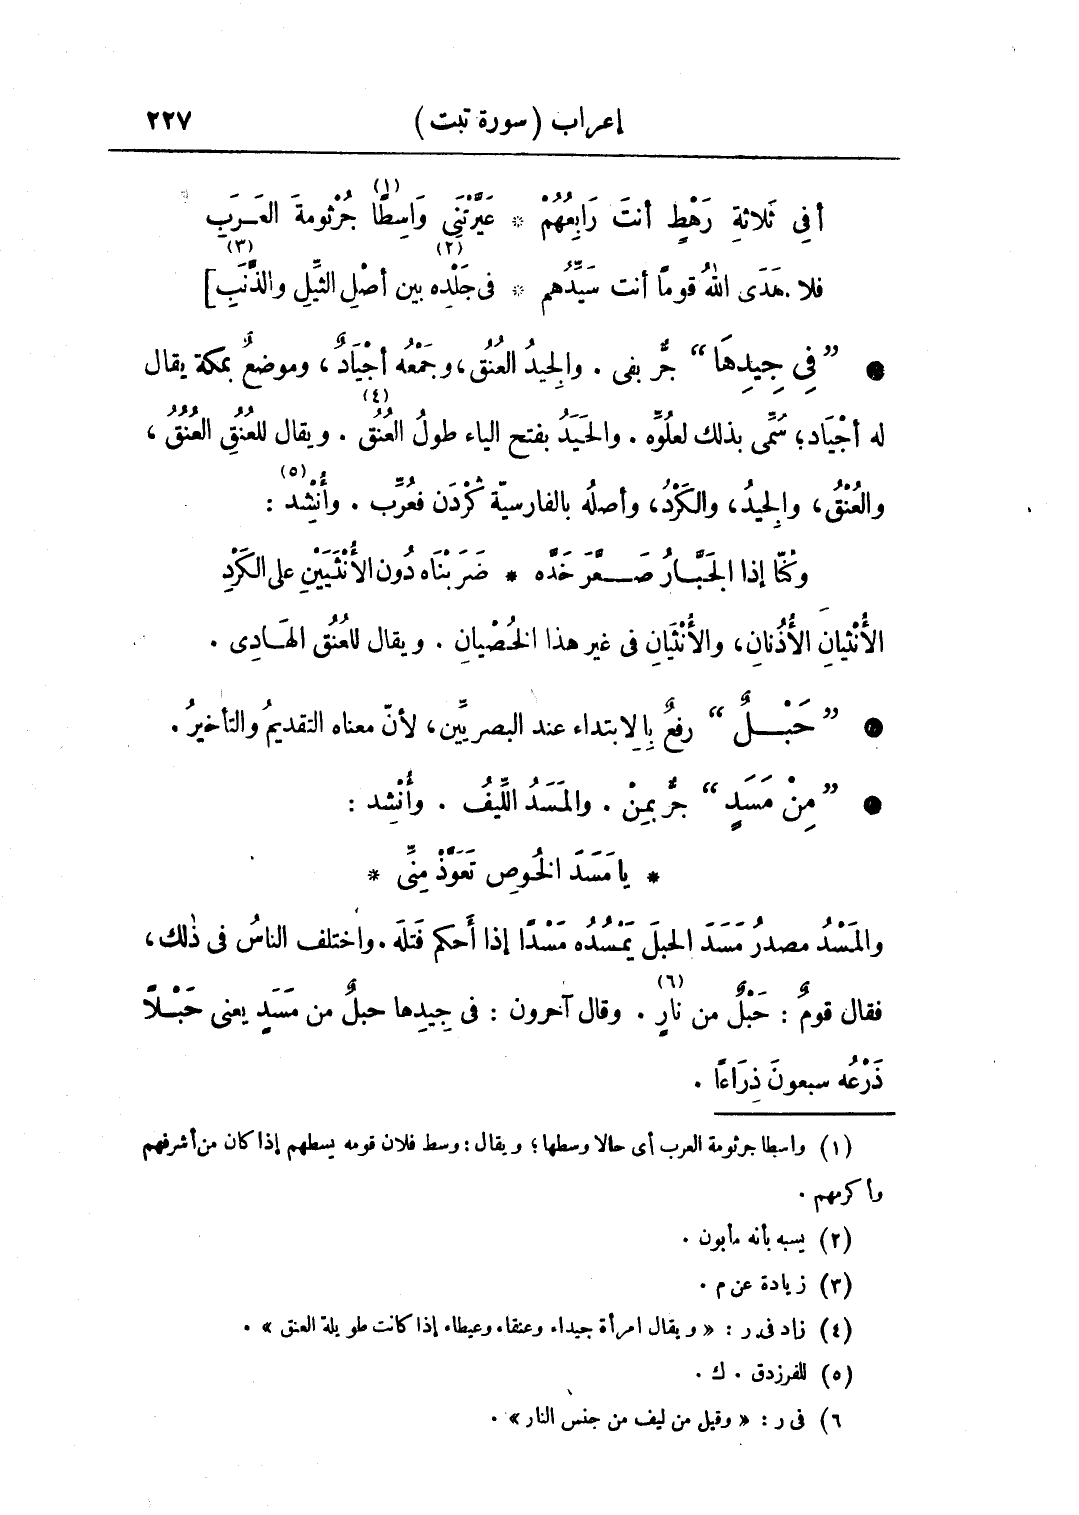 إعراب (سورة تبت) ٢٢٧
أفِى ثَلاثةِ رَهْطٍ أنتَ رَابِعُهُمْ * عَيَّرْتَنِى وَاسِطًا (١) جُرْثومةَ العَـرَبِ
فلا هَدَى اللهُ قومًا أنت سَيِّدُهم * فى جَلْدِه (٢) بين أصْلِ الثِّيلِ والذَّنَبِ (٣)]
● ”فِى جِيدِهَا“ جُرَّ بفى . والجِيدُ العُنُقُ، وجَمْعُه أجْيَادٌ ، وموضعٌ بمكة يقال
له أجْيَاد؛ سُمِّى بذلك لعلُوِّه . والجَيَدُ بفتح الياء طولُ العُنُقِ (٤) . ويقال للعُنُقِ العُنُقُ ،
والعُنْقُ، والجِيدُ، والكَرْدُ، وأصلُه بالفارسيّة كُرْدَن فعُرِّب . وأُنْشِد (٥) :
وكُنّا إذا الجَبَّـارُ صَـعَّرَ خَدَّه * ضَرَبْنَاه دُون الأُنْثَيَيْنِ على الكَرْدِ
الأُنْثيانِ الأُذُنانِ، والأُنْثَيَانِ فى غير هذا الخُصْيانِ . ويقال للعُنُق الهَـادِى .
● ”حَبْـلٌ“ رفعٌ بِالابتداء عند البصريِّين، لأنّ معناه التقديمُ والتأخيرُ .
● ”مِنْ مَسَدٍ“ جُرَّ بِمِنْ . والمَسَدُ اللِّيفُ . وأُنْشِد :
* يا مَسَدَ الخُوصِ تَعَوَّذْ مِنِّى *
والمَسْدُ مصدرُ مَسَدَ الحبلَ يَمْسُدُه مَسْدًا إذا أَحكم فَتلَه . واختلف الناسُ فى ذٰلك،
فقال قومٌ : حَبْلٌ من نارٍ (٦) . وقال آخرون : فى جِيدِها حبلٌ من مَسَدٍ يعنى حَبْـلًا
ذَرْعُه سبعونَ ذِرَاعًا .
(١) واسطا جرثومة العرب أى حالا وسطها؛ ويقال : وسط فلان قومه يسطهم إذا كان من أشرفهم
وأكرمهم .
(٢) يسبه بأنه مأبون .
(٣) زيادة عن م .
(٤) زاد فى ر : « ويقال امرأة جيداء وعنقاء وعيطاء إذا كانت طويلة العنق » .
(٥) للفرزدق . ك .
٦) فى ر : « وقيل من ليف من جنس النار » .